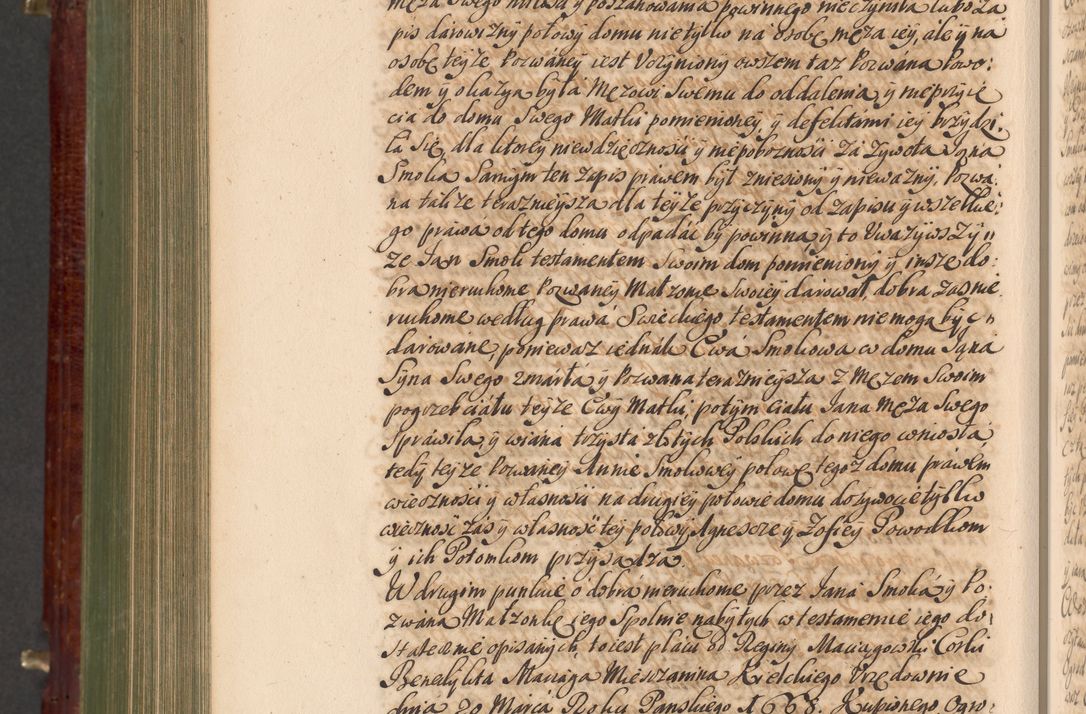 męża Swego miłości y poszanowania powinnego nieczyniła luboza
pis darowizny połowy domu nietylko na osobę męża iey, ale y na
osobę teyże Pozwáney iest Vczyniony owszem taz Pozwana Powo:
dem y okazya była Męzowi Swému do oddalenia y nieprzyię
cia do domu Swego Matki pomienioney y defektami iey brzydzi:
ła Się, dla ktorey niewdzięcznosci y niepoboznosci Za Zywota Jana
Smolia Samym ten Zapis prawem był zniesiony y niewazny, Pozwá:
na takze terazniejsza dla teyże przyczyny od zapisu y wszelkie:
go práwá od tego domu odpadać by powinna, y to Vwazywszy
ze Jan Smoli testamentem Swoim dom pomieniony y insze do:
bra nieruchome Pozwaney Małzonie Swoiey darował, dobra zas nie
ruchome według prawa Swieckiego testamentem nie mogą być
darowane, poniewaz iednak Ewá Smoliowa w domu Jana
Syna Swego zmárła y Pozwana terazniejsza z Męzem Swoim
pogrzeb ciáłu teyże Ewy Matki, potym ciału Jana Męża Swego
Spráwiła y wianá trzysta złotych Polskich do niego wniosłá,
tedy teyze Pozwáney Annie Smoliowey połowę tegoz domu práwem
wiecznosci y własnosci na drugiey połowie domu dozywocie tylko
wiecznosć zás y własnosć tey połowy Agnieszce y Zofiey Powodkom
y ich Potomkom przysądza.
W drugim punkcie o dobrá nieruchome przez Jana Smoliá y Po
zwáną Małzonkę iego Spolnie nabytych w testamencie iego do
statecznie opisanych, to iest placu od Reginy Maciągowski Corki
Benedykta Maciąga Mieszczanina Kieleckiego Vrzędownie
dnia 20 Marcá Roku Pańskiego 1668. Kupionego Ogro: